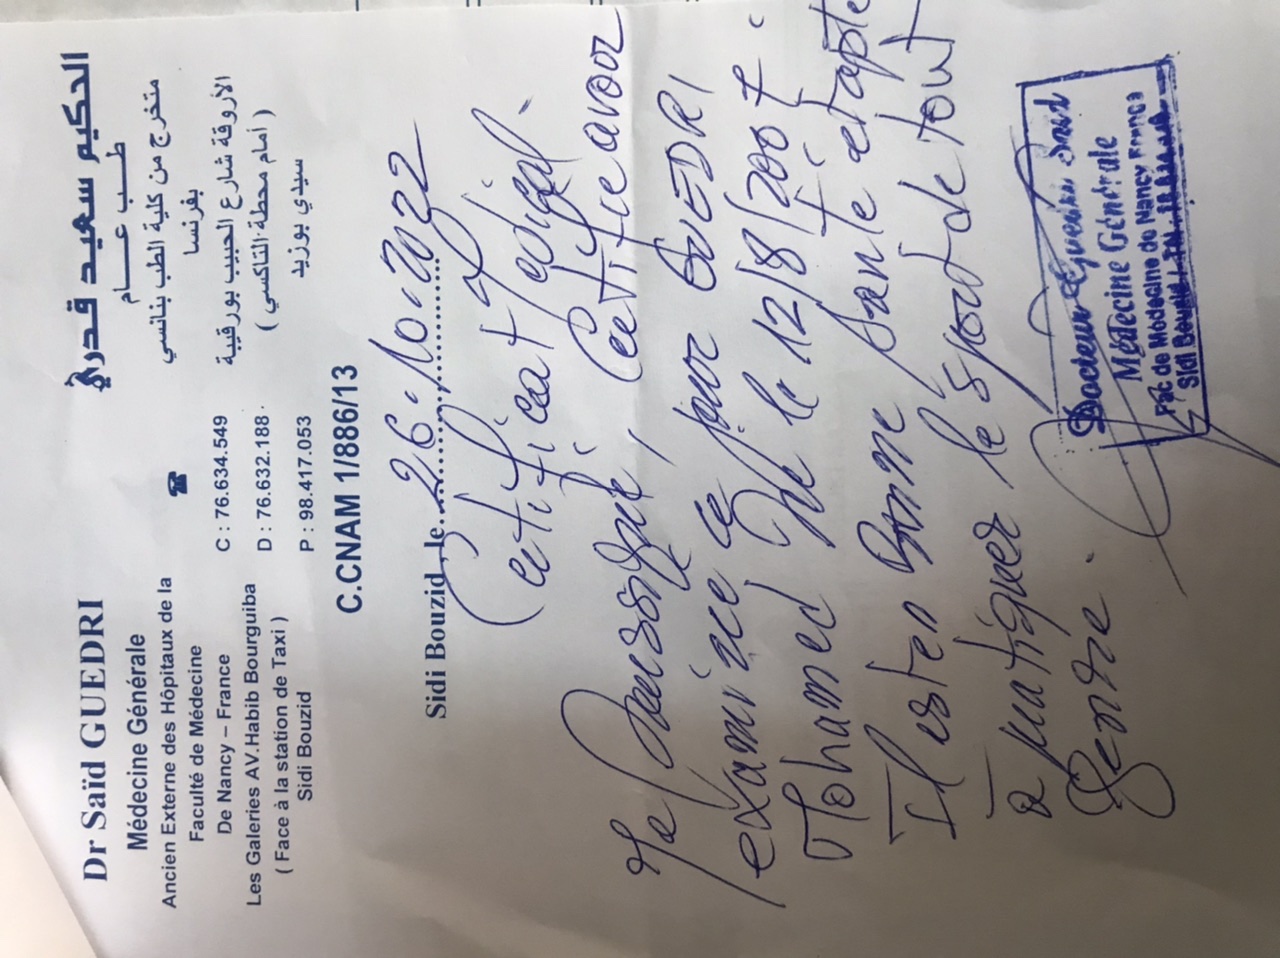 Dr Saïd GUEDRI
Médecine Générale
Ancien Externe des Hôpitaux de la
Faculté de Médecine
De Nancy – France
Les Galeries AV.Habib Bourguiba
( Face à la station de Taxi )
Sidi Bouzid
☎
C : 76.634.549
D : 76.632.188
P : 98.417.053
الحكيم سعيد قدري
طب عام
متخرج من كلية الطب بنانسي
بفرنسا
الأروقة شارع الحبيب بورقيبة
( أمام محطة التاكسي )
سيدي بوزيد
C.CNAM 1/886/13
Sidi Bouzid le 26.10.2022
Certificat Médical
Je soussigné, Certifie avoir
examiné ce jour GUEDRI
Mohamed Né le 12/8/2007.
Il est en bonne santé et apte
à pratiquer le sport de tout
genre.
Docteur Guedri Said
Médecine Générale
Fac de Médecine de Nancy France
Sidi Bouzid